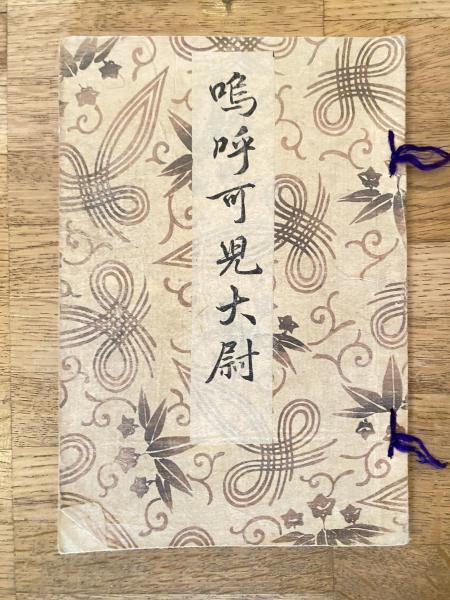 嗚呼可児大尉